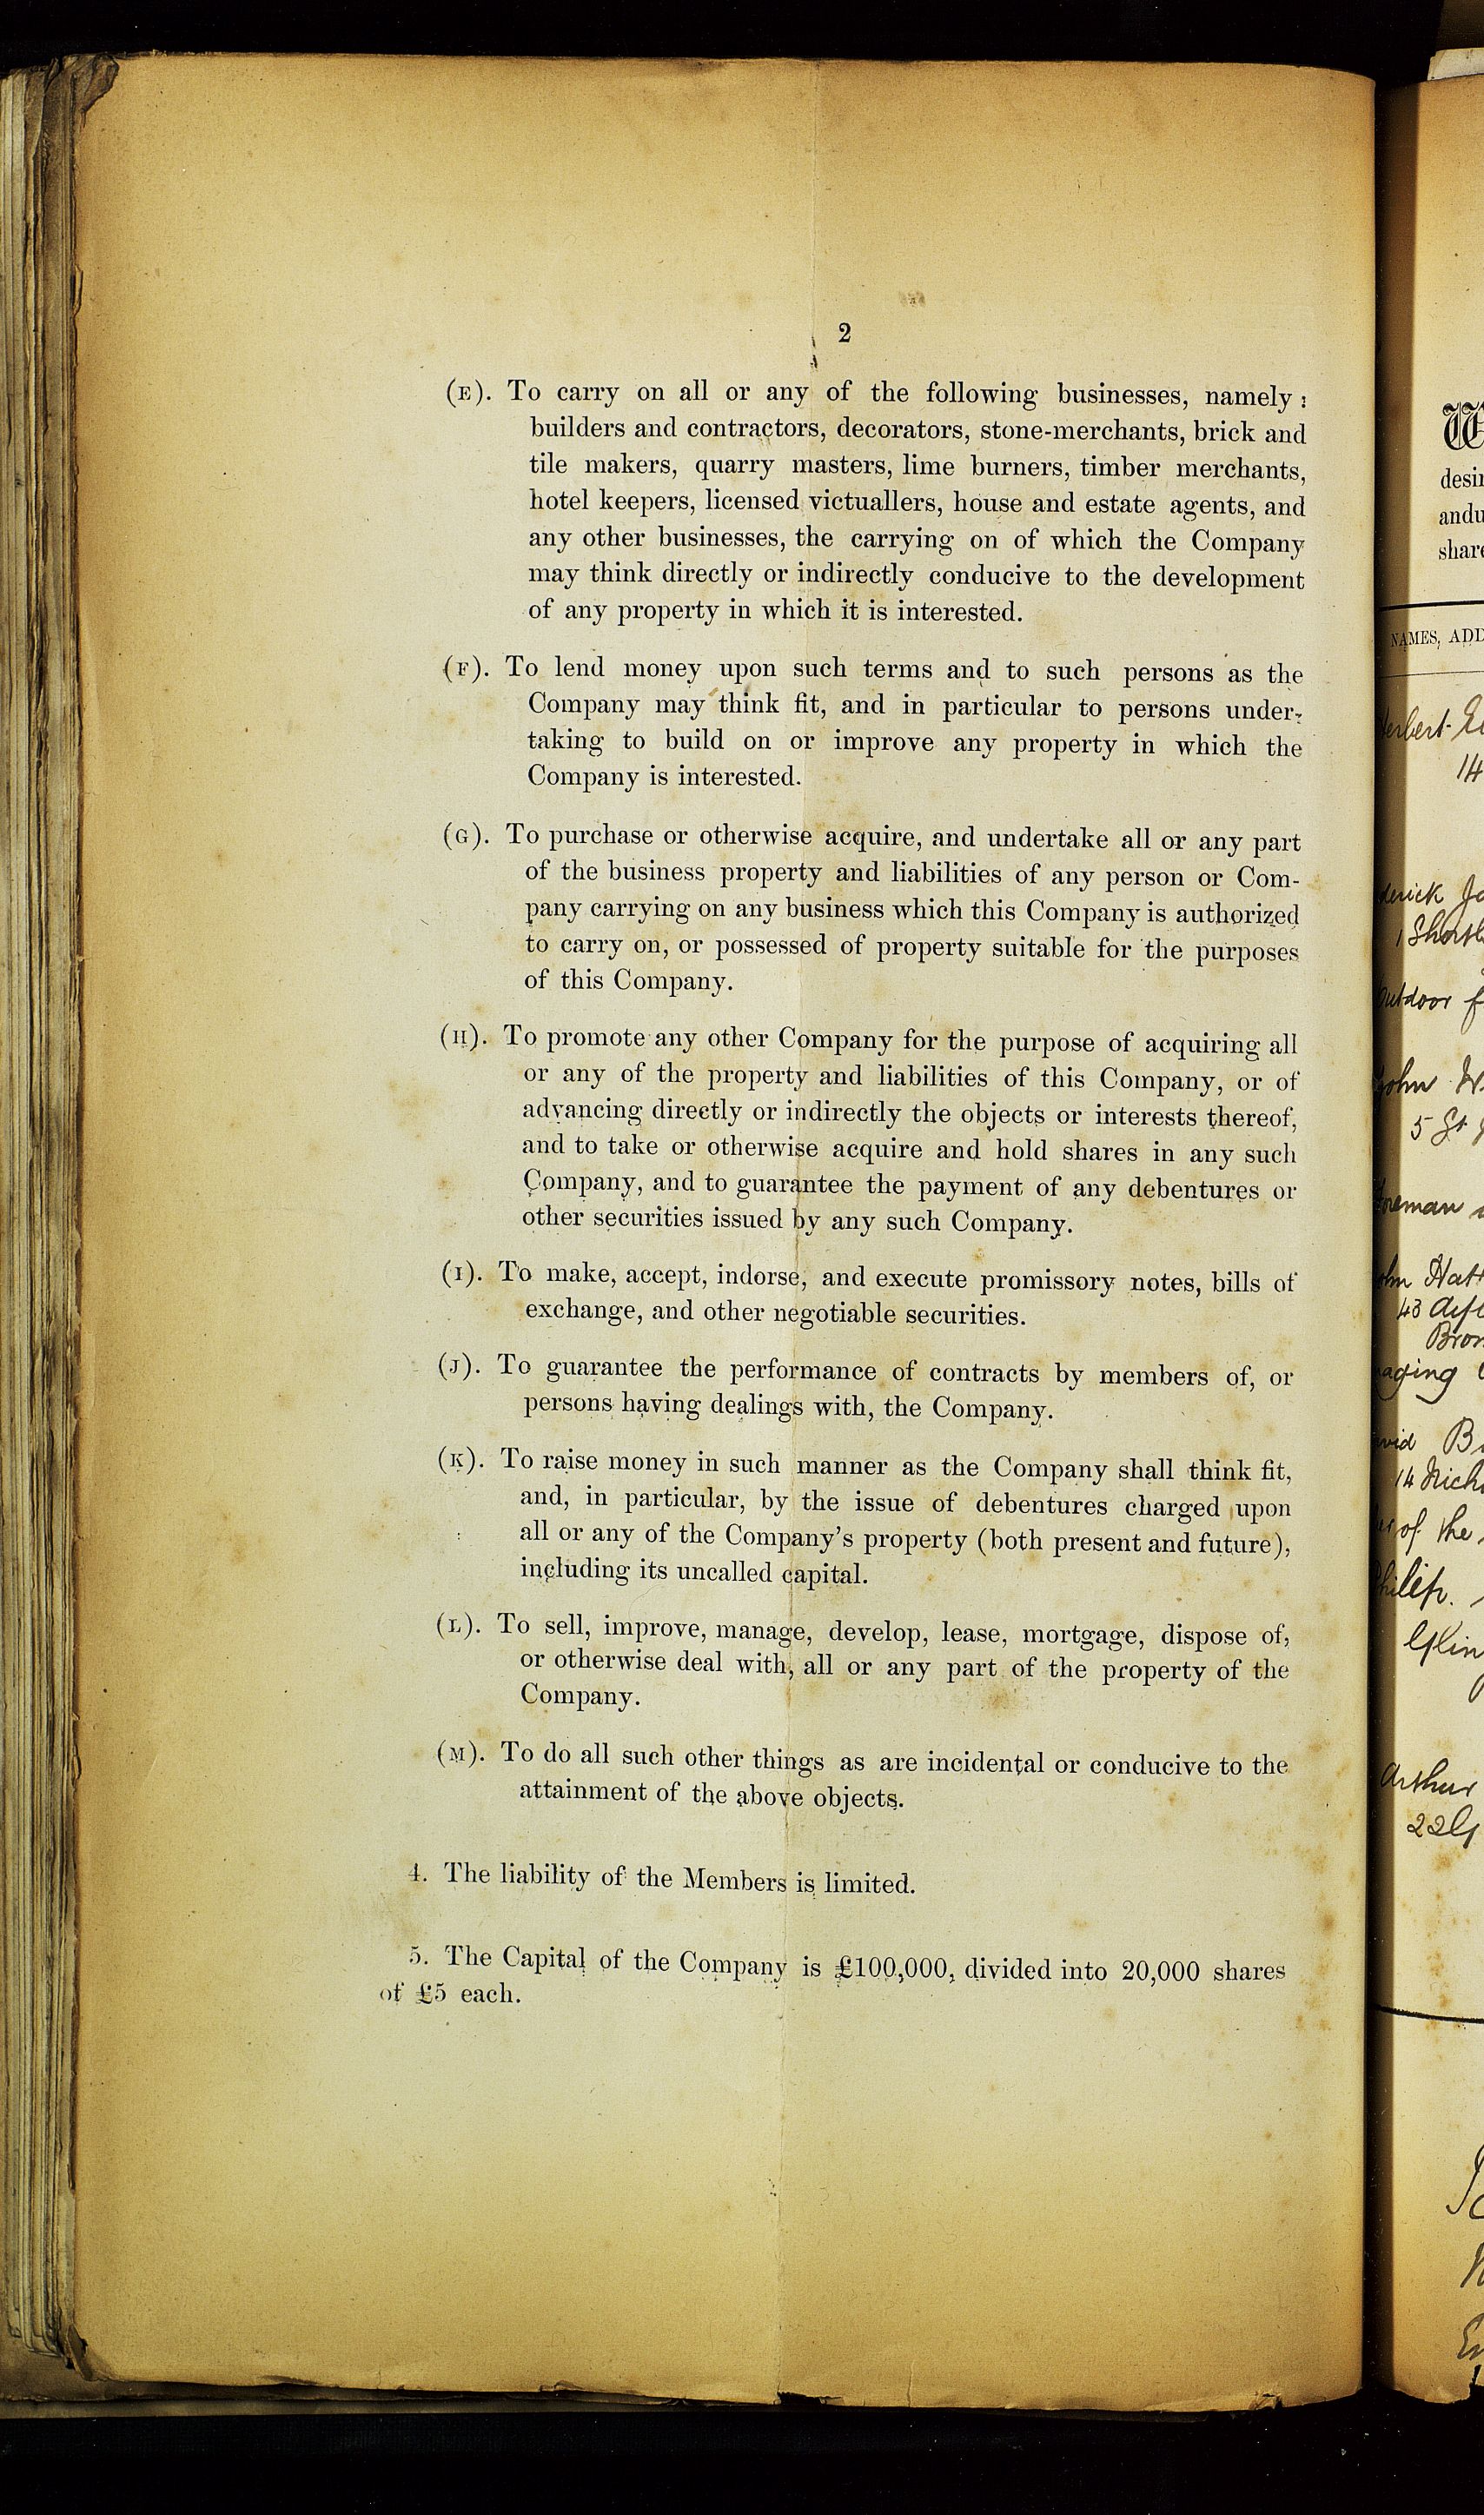 2
(E). To carry on all or any of the following businesses, namely :
builders and contractors, decorators, stone-merchants, brick and
tile makers, quarry masters, lime burners, timber merchants,
hotel keepers, licensed victuallers, house and estate agents, and
any other businesses, the carrying on of which the Company
may think directly or indirectly conducive to the development
of any property in which it is interested.
(F). To lend money upon such terms and to such persons as the
Company may think fit, and in particular to persons under-
taking to build on or improve any property in which the
Company is interested.
(G). To purchase or otherwise acquire, and undertake all or any part
of the business property and liabilities of any person or Com-
pany carrying on any business which this Company is authorized
to carry on, or possessed of property suitable for the purposes
of this Company.
(H). To promote any other Company for the purpose of acquiring all
or any of the property and liabilities of this Company, or of
advancing directly or indirectly the objects or interests thereof,
and to take or otherwise acquire and hold shares in any such
Company, and to guarantee the payment of any debentures or
other securities issued by any such Company.
(I). To make, accept, indorse, and execute promissory notes, bills of
exchange, and other negotiable securities.
(J). To guarantee the performance of contracts by members of, or
persons having dealings with, the Company.
(K). To raise money in such manner as the Company shall think fit,
and, in particular, by the issue of debentures charged upon
all or any of the Company's property (both present and future),
including its uncalled capital.
(L). To sell, improve, manage, develop, lease, mortgage, dispose of,
or otherwise deal with, all or any part of the property of the
Company.
(M). To do all such other things as are incidental or conducive to the
attainment of the above objects.
4. The liability of the Members is limited.
5. The Capital of the Company is £100,000, divided into 20,000 shares
of £5 each.
NAMES,
14
John
5 St
43
14
of the
Arthur